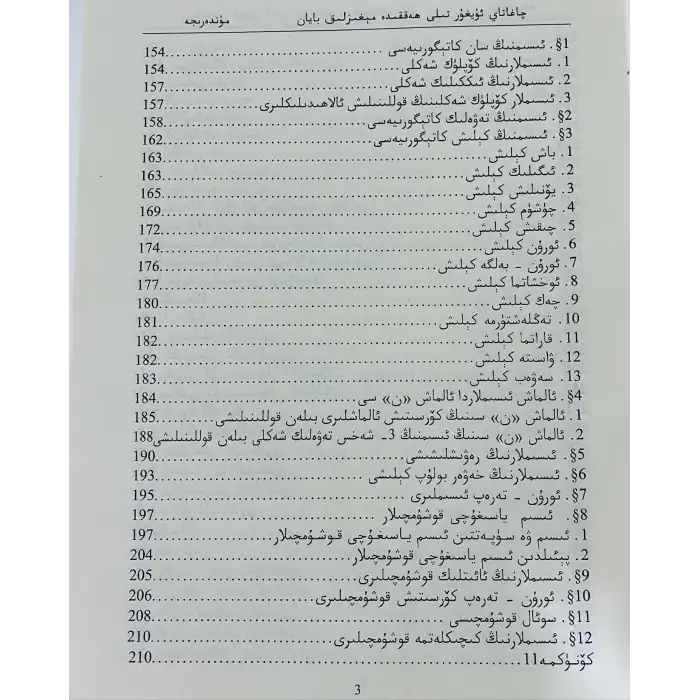 چاغاتاي ئۇيغۇر تىلى ھەققىدە مېغىزلىق بايان مۇندەرىجە
§1. ئىسىمنىڭ سان كاتېگورىيەسى ................................154
1. ئىسىملارنىڭ كۆپلۈك شەكلى................................154
2. ئىسىملارنىڭ ئىككىلىك شەكلى................................157
3. ئىسىملار كۆپلۈك شەكلىنىڭ قوللىنىلىش ئالاھىدىلىكلىرى................157
§2. ئىسىمنىڭ تەۋەلىك كاتېگورىيەسى................................158
§3. ئىسىمنىڭ كېلىش كاتېگورىيەسى................................162
1. باش كېلىش................................163
2. ئىگىلىك كېلىش................................163
3. يۆنىلىش كېلىش................................165
4. چۈشۈم كېلىش................................169
5. چىقىش كېلىش................................172
6. ئورۇن كېلىش................................174
7. ئورۇن - بەلگە كېلىش................................176
8. ئوخشاتما كېلىش................................177
9. چەك كېلىش................................180
10. تەڭلەشتۈرمە كېلىش................................181
11. قاراتما كېلىش................................182
12. ۋاسىتە كېلىش................................182
13. سەۋەب كېلىش................................183
§4. ئالماش ئىسىملاردا ئالماش «ن» سى................................184
1. ئالماش «ن» سىنىڭ كۆرسىتىش ئالماشلىرى بىلەن قوللىنىلىشى..........185
2. ئالماش «ن» سىنىڭ ئىسىمنىڭ 3- شەخس تەۋەلىك شەكلى بىلەن قوللىنىلىشى188
§5. ئىسىملارنىڭ رەۋىشلىشىشى................................190
§6. ئىسىملارنىڭ خەۋەر بولۇپ كېلىشى ................................193
§7. ئورۇن - تەرەپ ئىسىملىرى ................................195
§8. ئىسىم ياسىغۇچى قوشۇمچىلار................................197
1. ئىسىم ۋە سۈپەتتىن ئىسىم ياسىغۇچى قوشۇمچىلار................197
2. پېئىلدىن ئىسىم ياسىغۇچى قوشۇمچىلار................................204
§9. ئىسىملارنىڭ ئائىتلىك قوشۇمچىلىرى................................205
§10. ئورۇن - تەرەپ كۆرسىتىش قوشۇمچىلىرى................................206
§11. سوئال قوشۇمچىسى ................................208
§12. ئىسىملارنىڭ كىچىكلەتمە قوشۇمچىلىرى................................210
كۆنۈكمە11................................210
3